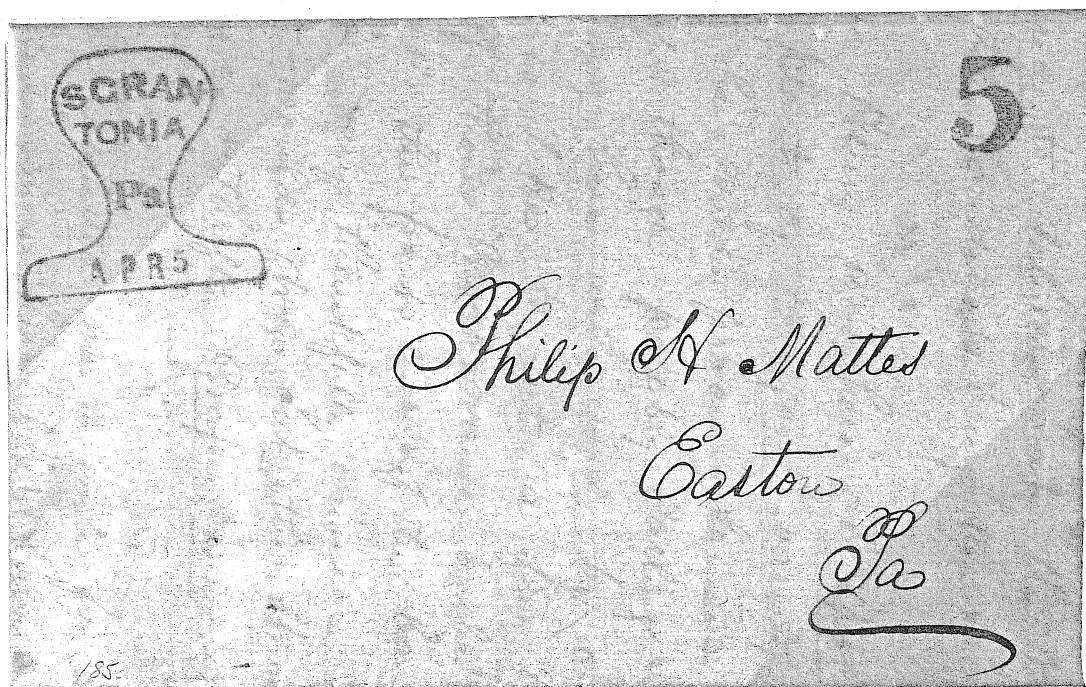 SCRAN
TONIA
Pa
APR5
5
Philip H Mattes
Easton
Pa
185